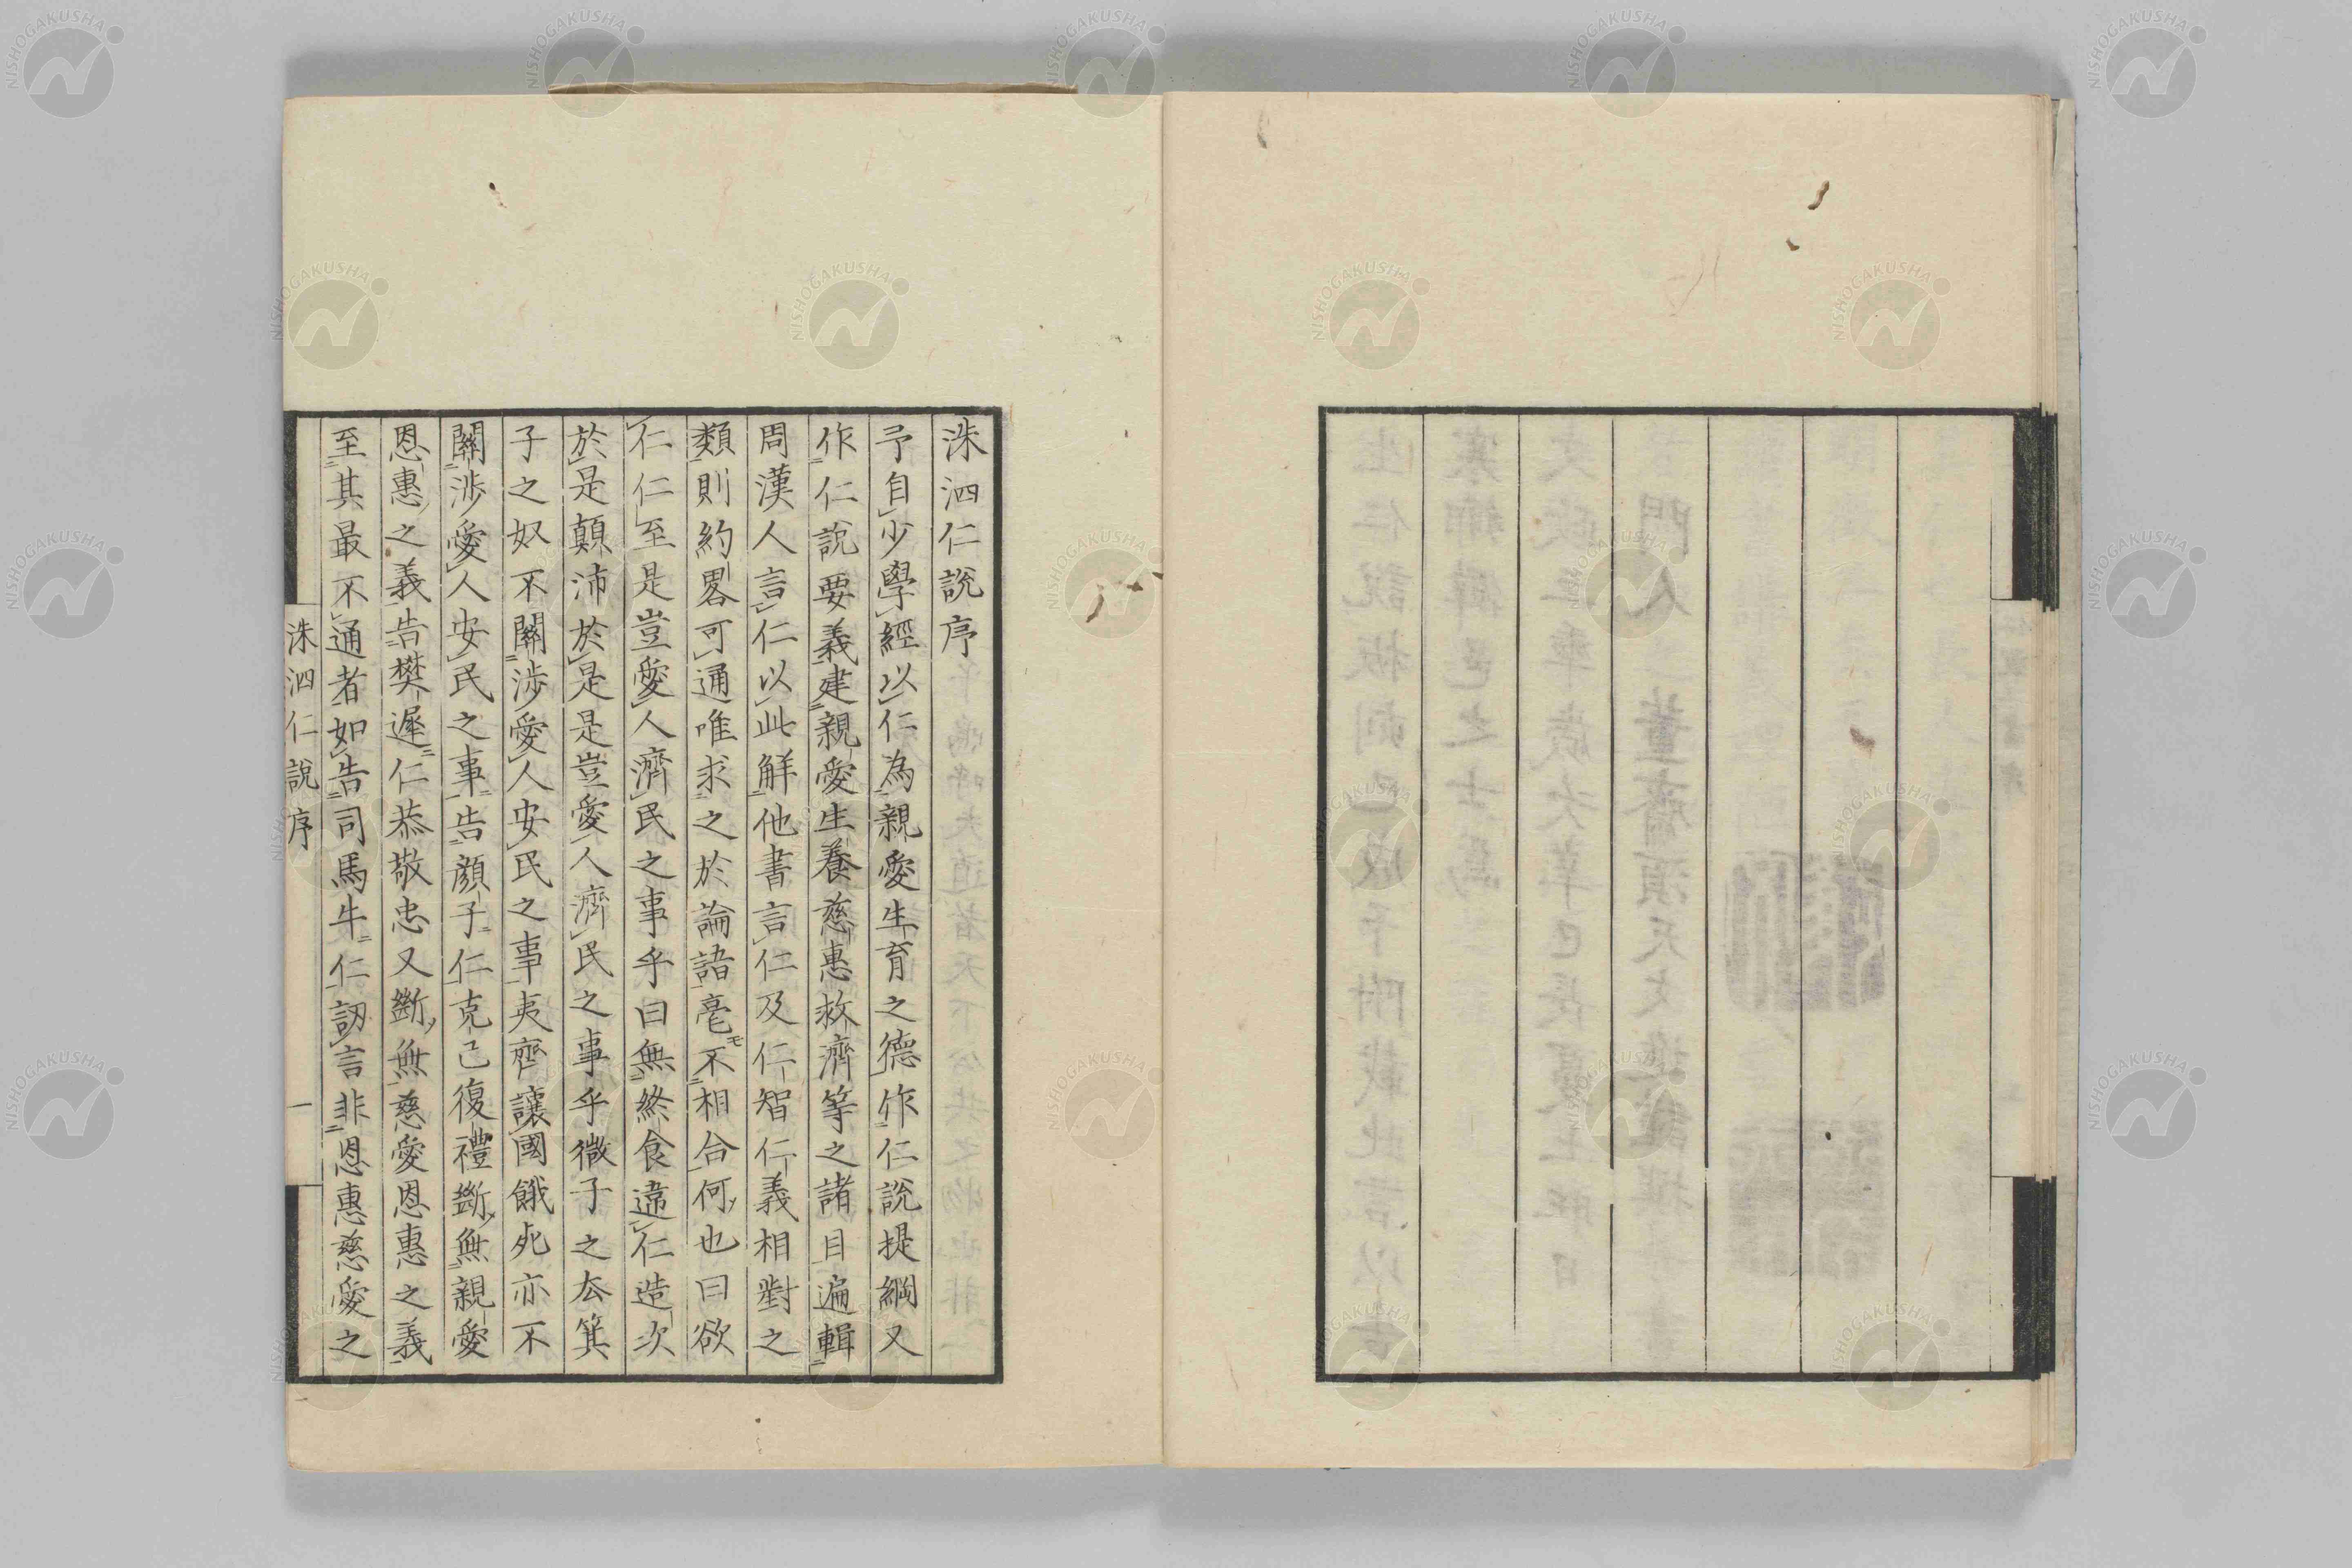 洙泗仁說序
予自少學經以仁為親愛生育之德作仁說提綱又
作仁說要義建親愛生養慈惠救濟等之諸目遍輯
周漢人言仁以此解他書言仁及仁智仁義相對之
類則約畧可通唯求之於論語毫モ不相合何也曰欲
仁仁至是豈愛人濟民之事乎曰無終食違仁造次
於是顛沛於是是豈愛人濟民之事乎微子之去箕
子之奴不關涉愛人安民之事夷齊讓國餓死亦不
關涉愛人安民之事告顏子仁克己復禮斷無親愛
恩惠之義告樊遲仁恭敬忠又斷無慈愛恩惠之義
至其最不通者如告司馬牛仁訒言非恩惠慈愛之
洙泗仁說序
一
NISHOGAKUSHA